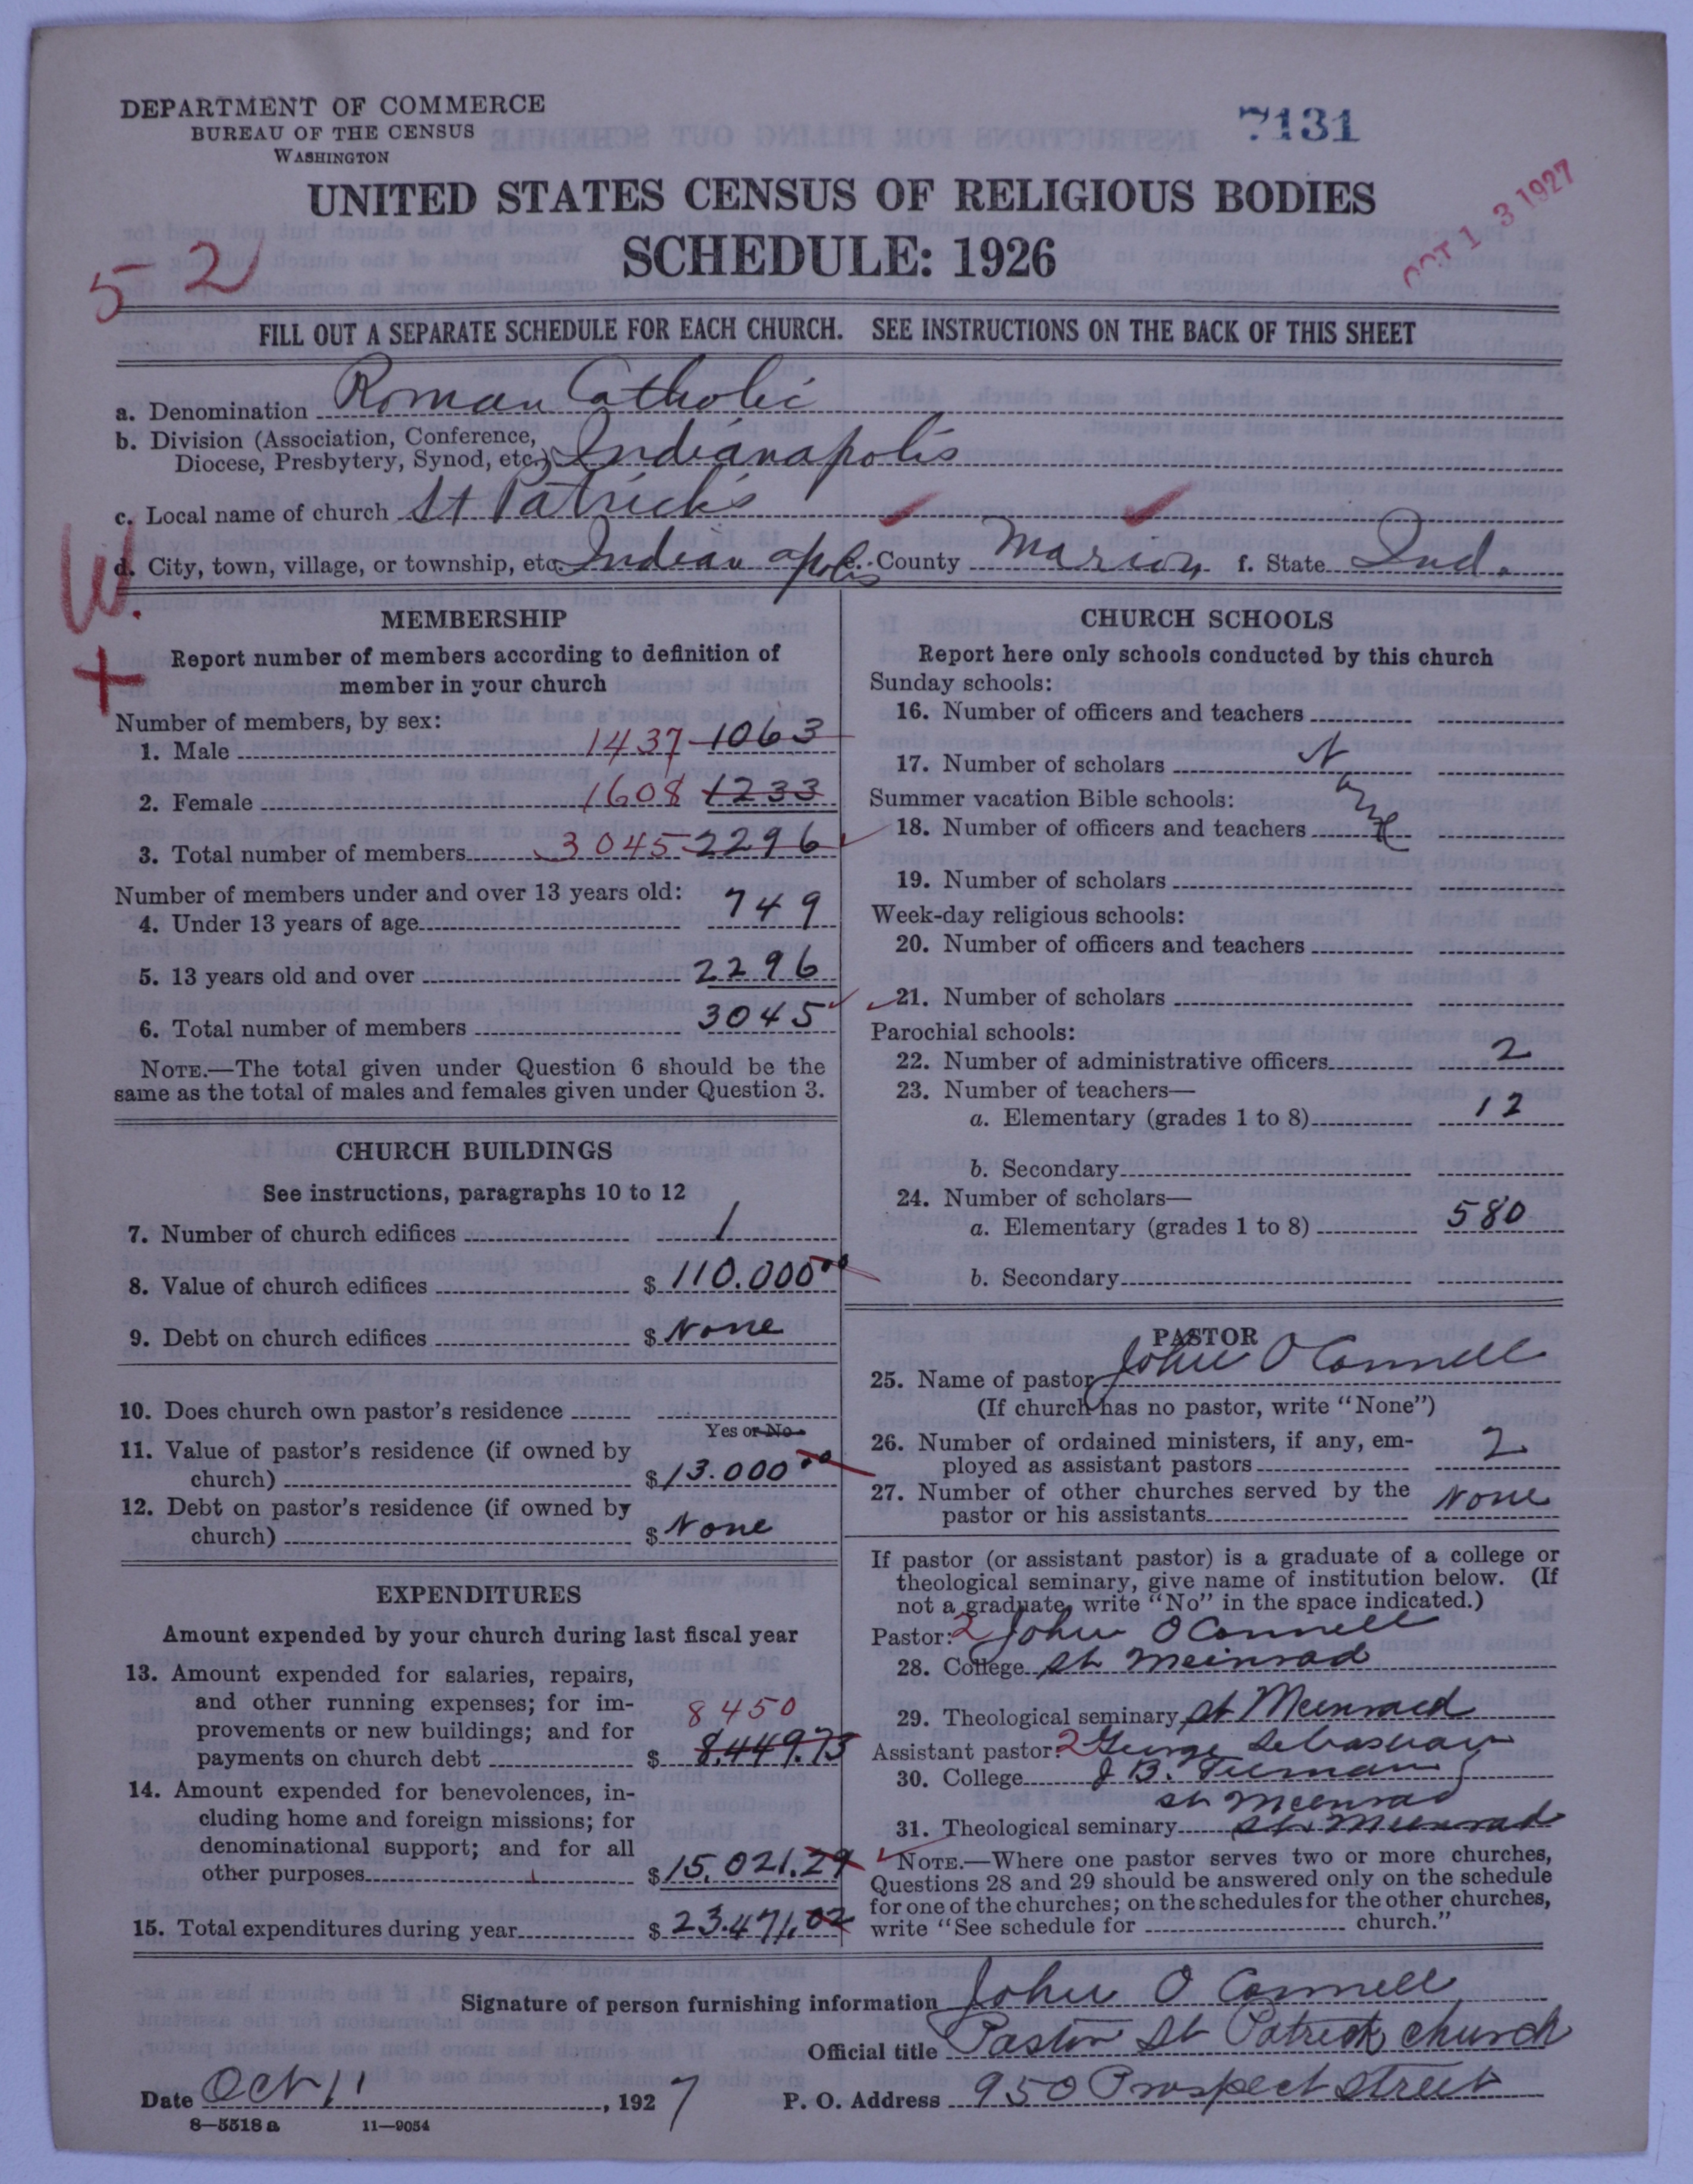 DEPARTMENT OF COMMERCE
BUREAU OF THE CENSUS
WASHINGTON
7131
UNITED STATES CENSUS OF RELIGIOUS BODIES
SCHEDULE: 1926
OCT 13 1927
52
FILL OUT A SEPARATE SCHEDULE FOR EACH CHURCH. SEE INSTRUCTIONS ON THE BACK OF THIS SHEET
a. Denomination Roman Catholic
b. Division (Association, Conference,
Diocese, Presbytery, Synod, etc.) Indianapolis
c. Local name of church St Patrick's
d. City, town, village, or township, etc. Indianapolis e. County Marion f. State Ind.
W.
+
MEMBERSHIP
Report number of members according to definition of
member in your church
Number of members, by sex:
1. Male 1437 1063
2. Female 1608 1233
3. Total number of members 3045 2296
Number of members under and over 13 years old:
4. Under 13 years of age 749
5. 13 years old and over 2296
6. Total number of members 3045
NOTE.—The total given under Question 6 should be the
same as the total of males and females given under Question 3.
CHURCH BUILDINGS
See instructions, paragraphs 10 to 12
7. Number of church edifices 1
8. Value of church edifices $ 110.000 00
9. Debt on church edifices $ None
10. Does church own pastor's residence
Yes or No
11. Value of pastor's residence (if owned by
church) $ 13.000 00
12. Debt on pastor's residence (if owned by
church) $ None
EXPENDITURES
Amount expended by your church during last fiscal year
13. Amount expended for salaries, repairs,
and other running expenses; for im-
provements or new buildings; and for 8450
payments on church debt $ 8,449.73
14. Amount expended for benevolences, in-
cluding home and foreign missions; for
denominational support; and for all
other purposes $ 15,021.29
15. Total expenditures during year $ 23.471.02
CHURCH SCHOOLS
Report here only schools conducted by this church
Sunday schools:
16. Number of officers and teachers
17. Number of scholars None
Summer vacation Bible schools:
18. Number of officers and teachers
19. Number of scholars
Week-day religious schools:
20. Number of officers and teachers
21. Number of scholars
Parochial schools:
22. Number of administrative officers 2
23. Number of teachers—
a. Elementary (grades 1 to 8) 12
b. Secondary
24. Number of scholars—
a. Elementary (grades 1 to 8) 580
b. Secondary
PASTOR
25. Name of pastor John O'Connell
(If church has no pastor, write "None")
26. Number of ordained ministers, if any, em-
ployed as assistant pastors 2
27. Number of other churches served by the
pastor or his assistants None
If pastor (or assistant pastor) is a graduate of a college or
theological seminary, give name of institution below. (If
not a graduate, write "No" in the space indicated.)
Pastor: 2 John O'Connell
28. College St Meinrad
29. Theological seminary St Meinrad
Assistant pastor: 2 George Sebastian
30. College J B.
St Meinrad
31. Theological seminary St. Meinrad
NOTE.—Where one pastor serves two or more churches,
Questions 28 and 29 should be answered only on the schedule
for one of the churches; on the schedules for the other churches,
write "See schedule for church."
Signature of person furnishing information John O Connell
Official title Pastor St Patrick church
Date Oct 11, 1927 P. O. Address 950 Prospect Street
8—5518 a 11—9054